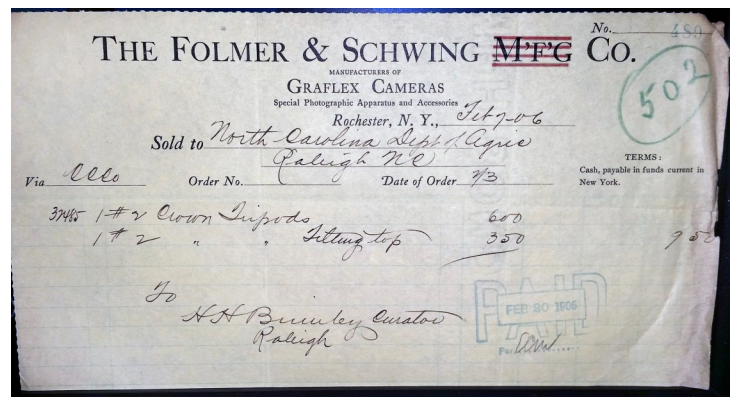 No. 480
THE FOLMER & SCHWING M'F'G CO.
502
MANUFACTURERS OF
GRAFLEX CAMERAS
Special Photographic Apparatus and Accessories
Rochester, N. Y., Feb 7-06
Sold to North Carolina Dept of Agric
Raleigh NC
TERMS:
Cash, payable in funds current in
New York.
Via Order No. Date of Order 2/3
37485 1 # 2 Crown Tripods 600
1 # 2 " " Tilting top 350 9 50
To
H H Brimley Curator
Raleigh
PAID
FEB 20 1906
Per